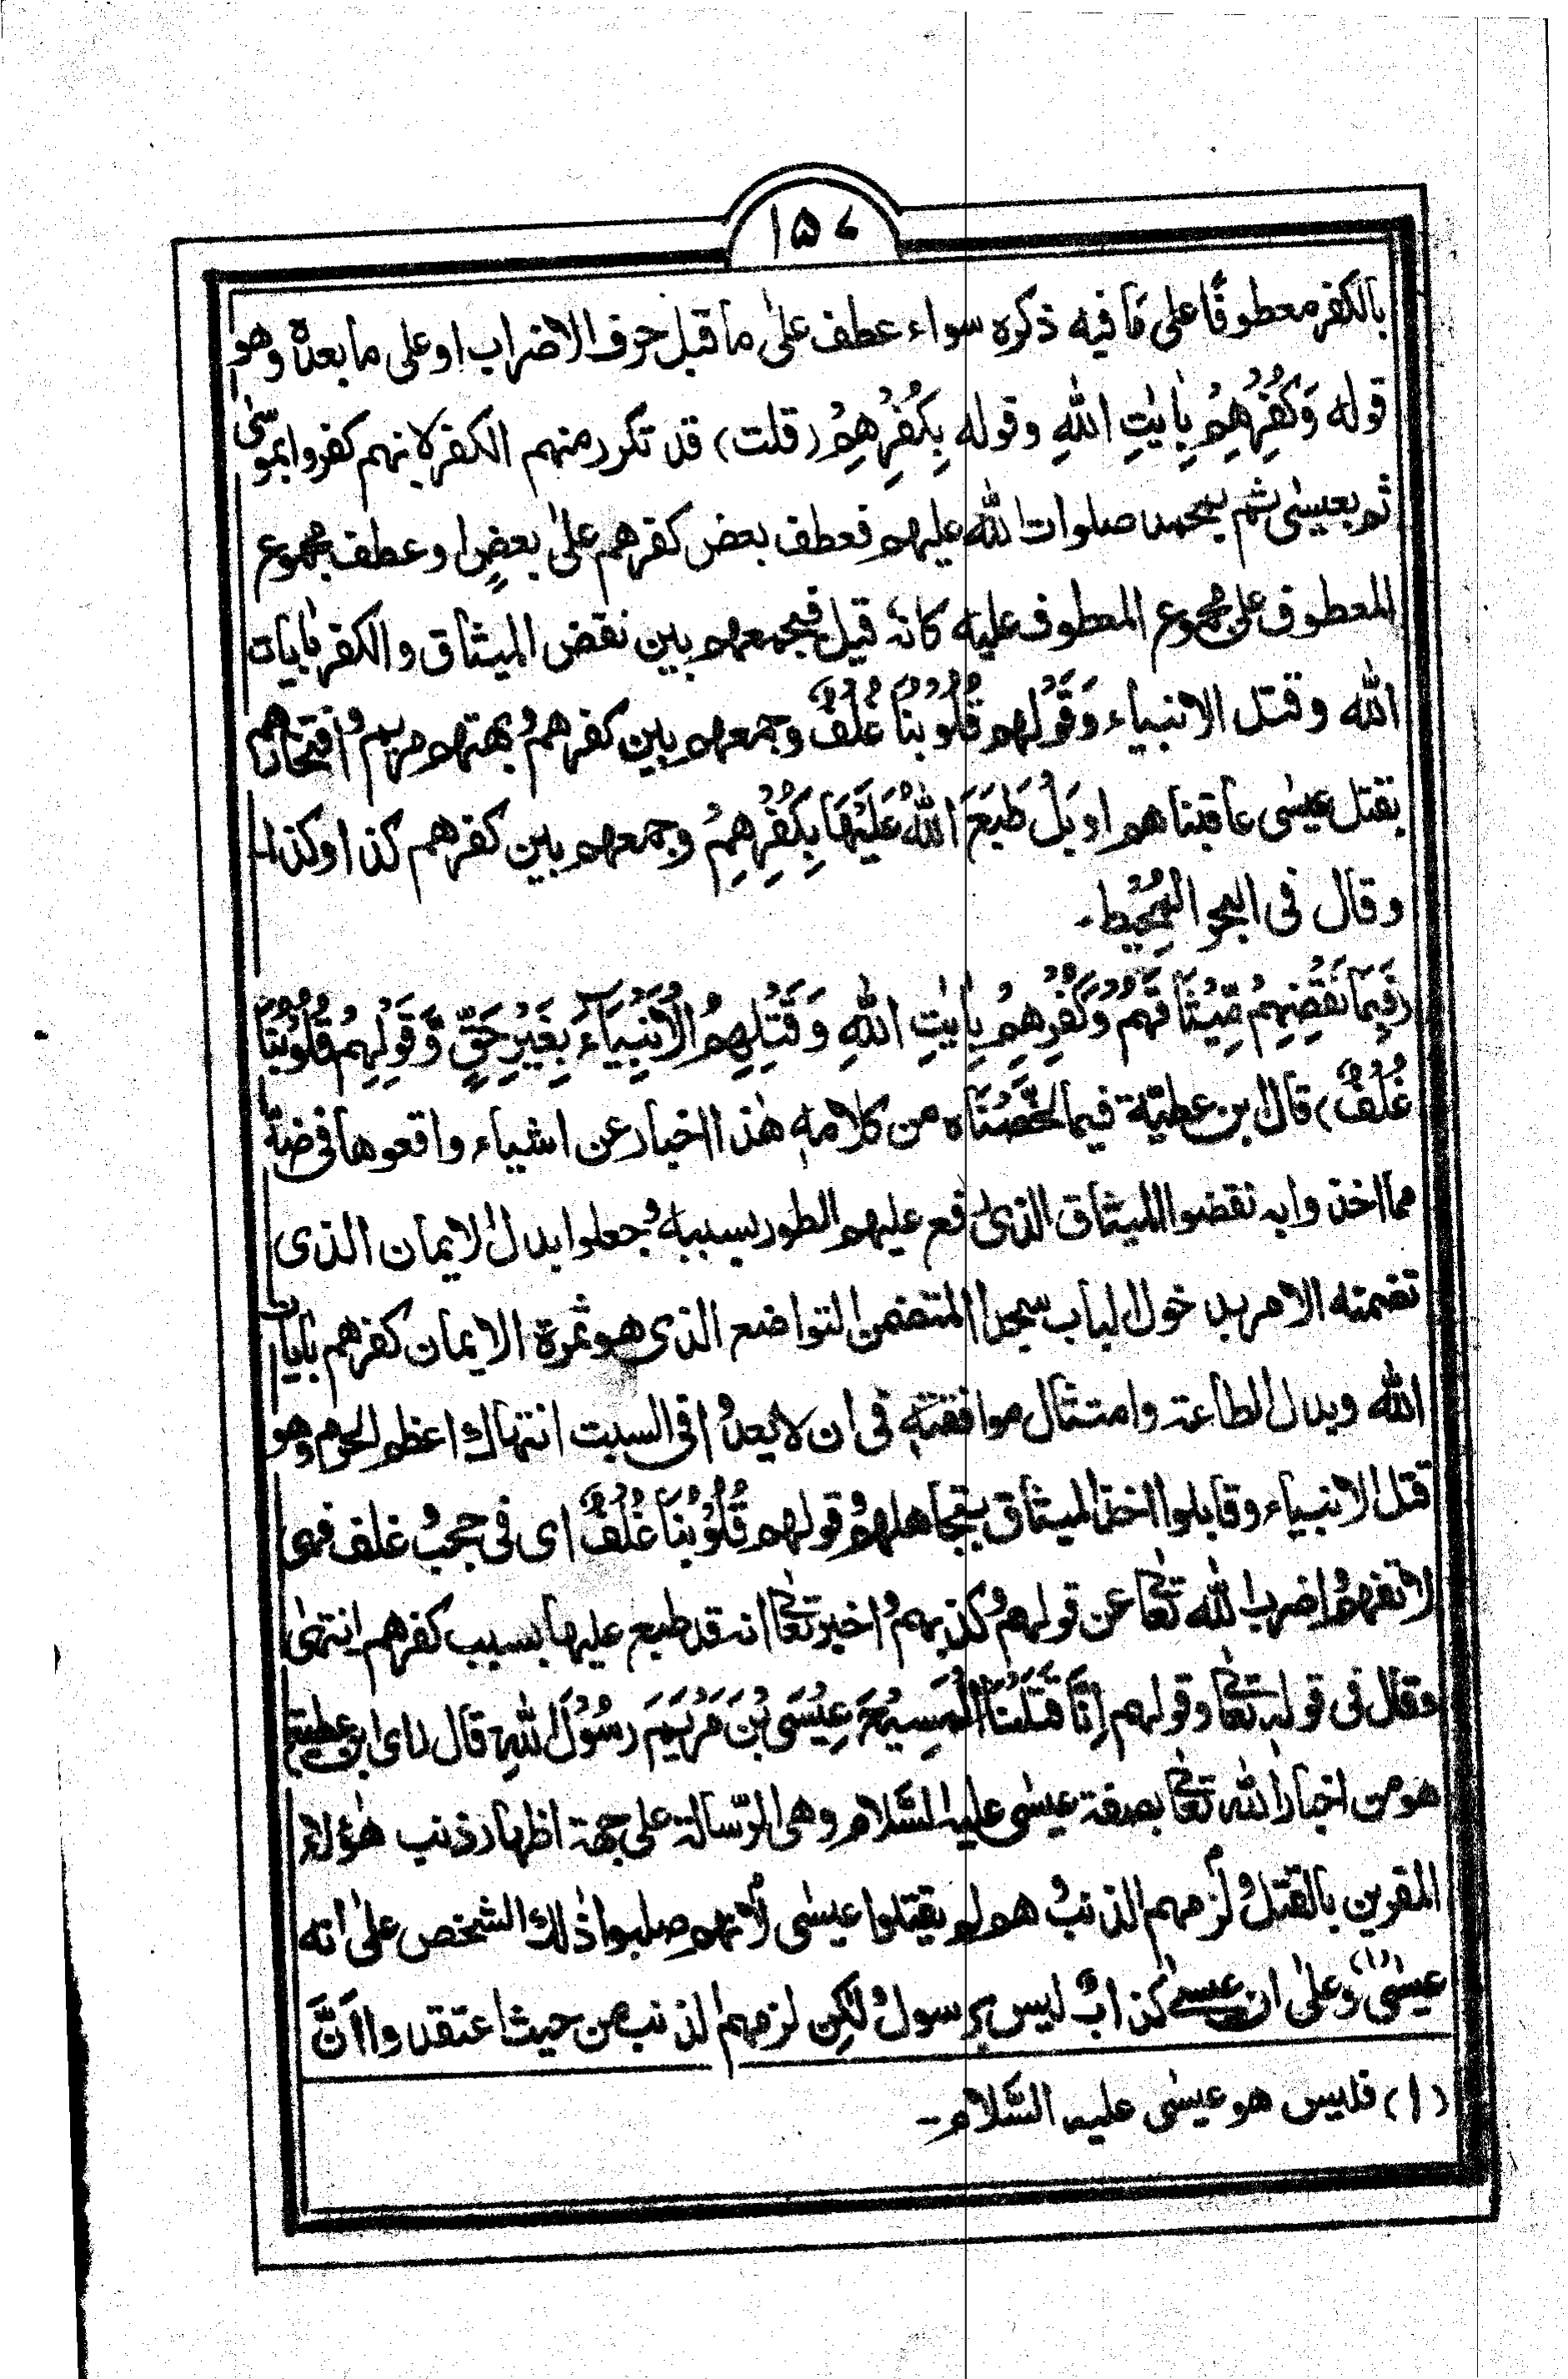 ۱۵۷
بالكفر معطوفًا على مافيه ذكره سواء عطف علىٰ ما قبل حرف الاضراب او على ما بعدهٗ وهو
قوله وَكُفْرِهِمْ بِاٰيٰتِ اللهِ وقوله بِكُفْرِهِمْ (قلت) قد تكرر منهم الكفر لانهم كفروا بموسىٰ
ثم بعيسىٰ ثم بمحمد صلوات الله عليهم فعطف بعض كفرهم علىٰ بعضٍ او عطف مجموع
المعطوف على مجموع المعطوف عليه كانهٗ قيل فبجمعهم بين نقض الميثاق والكفر بآيات
الله وقتل الانبياء وَقَوْلهم قُلُوْبُنَا غُلْفٌ وجمعهم بين كفرهم وبهتهم مريم وافتخارهم
بقتل عيسٰى عاقبناهم او بَلْ طَبَعَ اللهُ عَلَيْهَا بِكُفْرِهِمْ وجمعهم بين كفرهم كذا وكذا۔
وقال فى البحر الْمُحِيْط۔
(فَبِمَا نَقْضِهِمْ مِّيْثَاقَهُمْ وَكُفْرِهِمْ بِاٰيٰتِ اللهِ وَقَتْلِهِمُ الْاَنْبِيَآءَ بِغَيْرِ حَقٍّ وَّقَوْلِهِمْ قُلُوْبُنَا
غُلْفٌ) قال ابن عطيّة فيما لخّصْنَاه من كلامهٖ هٰذا اخبار عن اشياء واقعوها فى ضدّ
مما اخذوا به نقضوا الميثاق الذى رفع عليهم الطور بسببه وجعلوا بدل الايمان الذى
تضمنه الامر بدخول الباب سجدا المتضمن التواضع الذى هو ثمرة الايمان كفرهم بآيات
الله وبدل الطاعة وامتثال موافقتهٖ فى ان لا يعدوا فى السبت انتهاك اعظم الحرم وهو
قتل الانبياء وقابلوا اخذ الميثاق بتجاهلهم وقولهم قُلُوْبُنَا غُلْفٌ اى فى حجب وغلف فهى
لا تفهم واضرب الله تعالٰى عن قولهم وكذبهم واخبر تعالٰى انه قد طبع عليها بسبب كفرهم انتهىٰ
وقال فى قوله تعالٰى وقولهم اِنَّا قَتَلْنَا الْمَسِيْحَ عِيْسَى بْنَ مَرْيَمَ رَسُوْلَ اللهِ قال اى ابن عطيّة
هو من اخبار الله تعالٰى بصفة عيسٰى عليه السّلام وهى الرّسالة على جهة اظهار ذنب هٰؤلاء
المقرين بالقتل ولزمهم الذنب وهم لم يقتلوا عيسٰى لأنهم صلبوا ذٰلك الشخص علىٰ انه
عيسٰى(۱) وعلىٰ ان عيسىٰ كذابٌ ليس برسول ولٰكن لزمهم الذنب من حيث اعتقدوا اَنَّ
(۱) فليس هو عيسٰى عليه السّلام۔